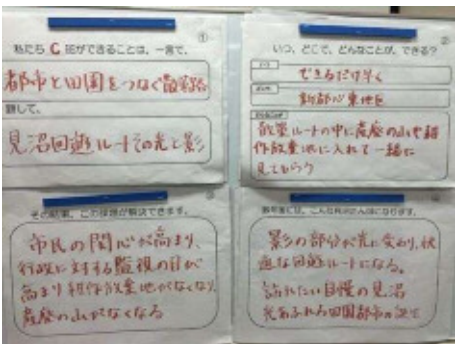 ①
私たち C 班ができることは、一言で、
都市と田園をつなぐ散策路
題して、
見沼回遊ルートその光と影
②
いつ、どこで、どんなことが、できる?
できるだけ早く
新都心東地区
散策ルートの中に産廃の山や耕
作放棄地に入れて一緒に
見てもらう
③
その結果、この課題が解決できます。
市民の関心が高まり、
行政に対する監視の目が
高まり耕作放棄地がなくなり、
産廃の山がなくなる
影の部分が光に変わり、快
適な回遊ルートになる。
訪れたい自慢の見沼
光あふれる田園都市の誕生